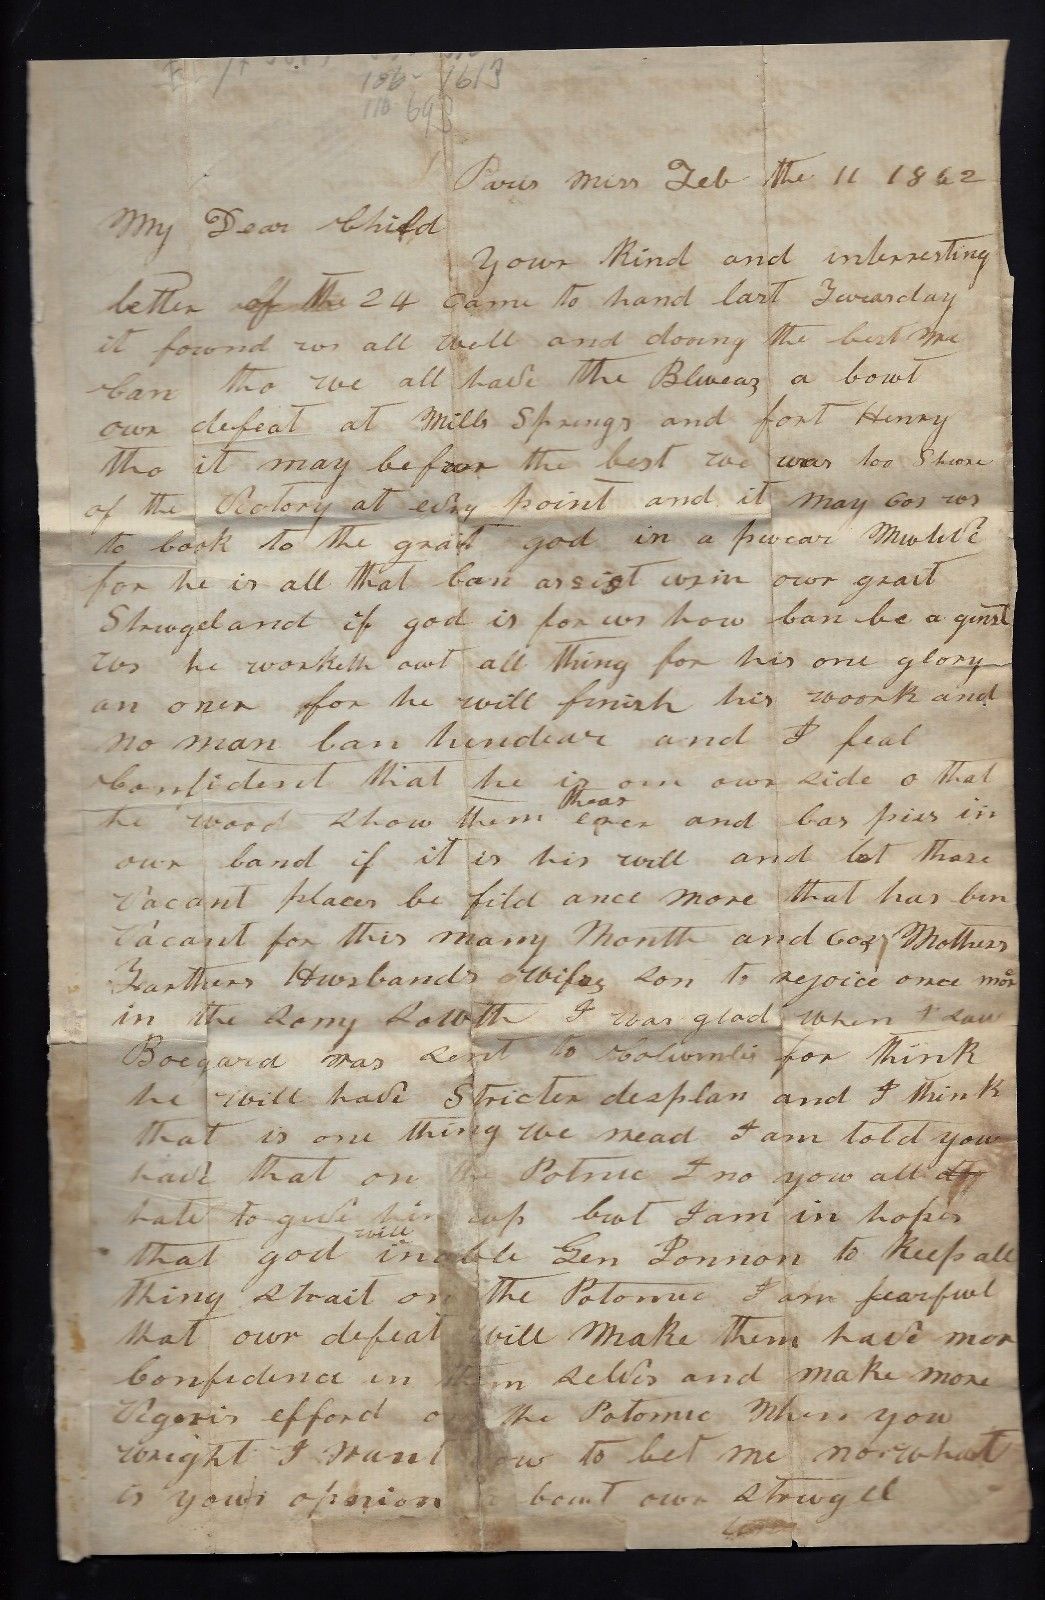 186- 1613
110 698
Paris Miss Feb the 11 1862
My Dear Child
Your kind and interresting
letter of the 24 came to hand last Twearsday
it fownd ws all well and doung the best we
can tho we all have the Blweas a bowt
owr defeat at Mills Springs and fort Henry
tho it may be for the best we was too Shwre
of the Victory at evry point and it may cos ws
to look to the grait god in a pwear
for he is all that can assist ws in owr grait
Strwgel and if god is for ws how can be a ginst
ws he worketh owt all thing for his one glory
an oner for he will finish his woork and
no man can hindear and I feal
Confident that he is on owr side o that
he wood show them thear erer and cas pies in
owr land if it is his will and let those
vacant places be fild ance more that has bin
vacant for this many Month and cos Mothers
Farthers Hwsbands wifes son to rejoice once mor
in the sony Sowth I was glad when I saw
Boegard was sent to Colwmbis for think
he will have Stricter desplan and I think
that is one thing we nead I am told yow
have that on the Potmic I no yow all
hate to give him wp bwt I am in hopes
that god will inable Gen Jonnon to keep all
thing strait on the Potomic I am fearfwl
that owr defeat will make them have mor
Confidence in them selvs and make more
Vigoris efford on the Potomic When yow
wright I want yow to let me no what
is yowr opinion a bowt owr strwgel